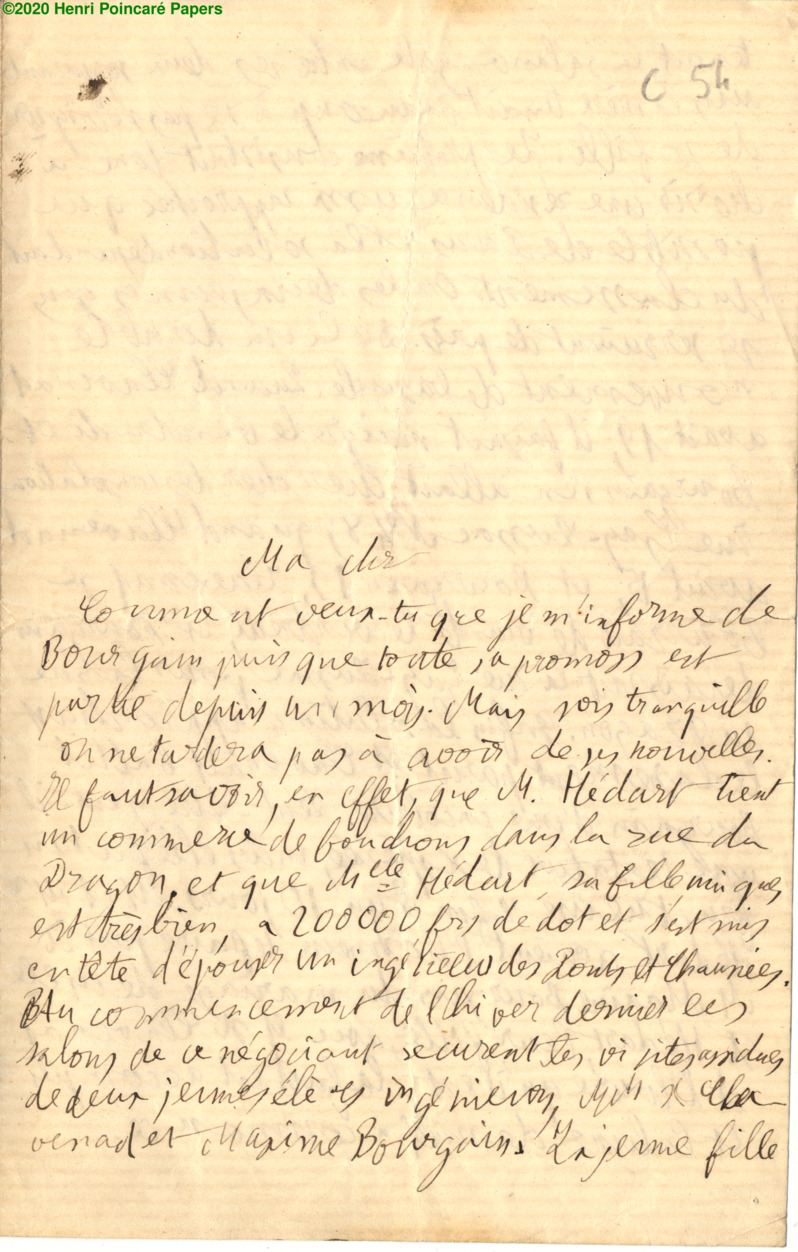 ©2020 Henri Poincaré Papers
C 54
Ma chr
Comment veux-tu que je m'informe de
Bourgoin puisque toute sa promoss est
partie depuis un mois. Mais sois tranquille
on ne tardera pas à avoir de ses nouvelles.
Il faut savoir, en effet, que M. Hédart tient
un commerce de goudrons dans la rue du
Dragon, et que Mlle Hédart, sa fille unique,
est très bien, a 200000 frs de dot et s'est mis
en tête d'épouser un ingénieur des Ponts et Chaussées.
Au commencement de l'hiver dernier les
salons de ce négociant reçurent les visites assidues
de deux jeunes élèves ingénieurs, MM x Cla
venad et Maxime Bourgoin. La jeune fille